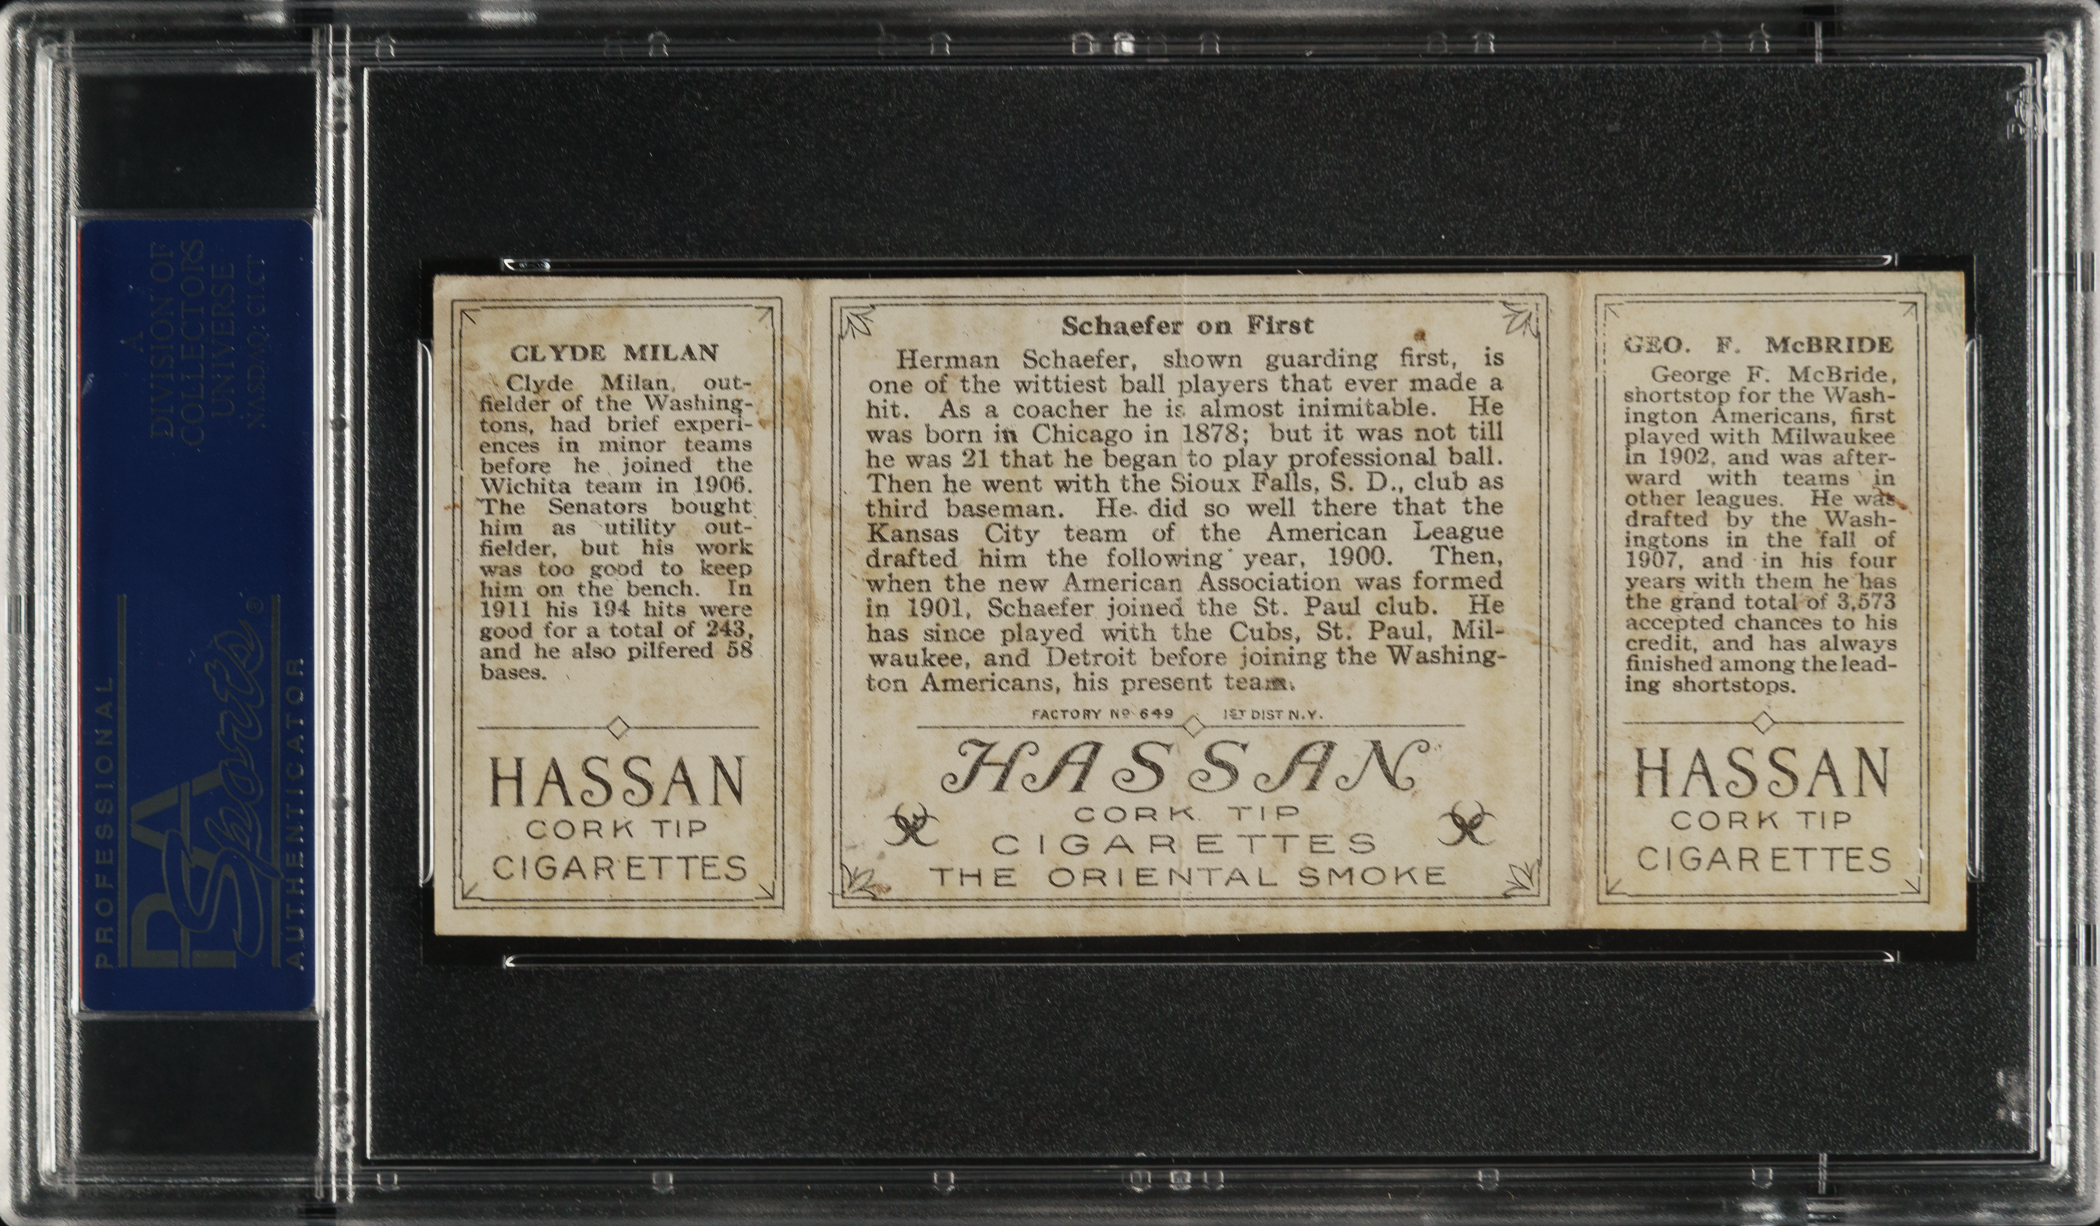 A
DIVISION OF
COLLECTORS
UNIVERSE
NASDAQ: CLCT
PROFESSIONAL
PSA
Sports®
AUTHENTICATOR
CLYDE MILAN
Clyde Milan, out-
fielder of the Washing-
tons, had brief experi-
ences in minor teams
before he joined the
Wichita team in 1906.
The Senators bought
him as utility out-
fielder, but his work
was too good to keep
him on the bench. In
1911 his 194 hits were
good for a total of 243,
and he also pilfered 58
bases.
HASSAN
CORK TIP
CIGARETTES
Schaefer on First
Herman Schaefer, shown guarding first, is
one of the wittiest ball players that ever made a
hit. As a coacher he is almost inimitable. He
was born in Chicago in 1878; but it was not till
he was 21 that he began to play professional ball.
Then he went with the Sioux Falls, S. D., club as
third baseman. He did so well there that the
Kansas City team of the American League
drafted him the following year, 1900. Then,
when the new American Association was formed
in 1901, Schaefer joined the St. Paul club. He
has since played with the Cubs, St. Paul, Mil-
waukee, and Detroit before joining the Washing-
ton Americans, his present team.
FACTORY No 649 1ST DIST N.Y.
HASSAN
CORK TIP
CIGARETTES
THE ORIENTAL SMOKE
GEO. F. McBRIDE
George F. McBride,
shortstop for the Wash-
ington Americans, first
played with Milwaukee
in 1902, and was after-
ward with teams in
other leagues. He was
drafted by the Wash-
ingtons in the fall of
1907, and in his four
years with them he has
the grand total of 3,573
accepted chances to his
credit, and has always
finished among the lead-
ing shortstops.
HASSAN
CORK TIP
CIGARETTES